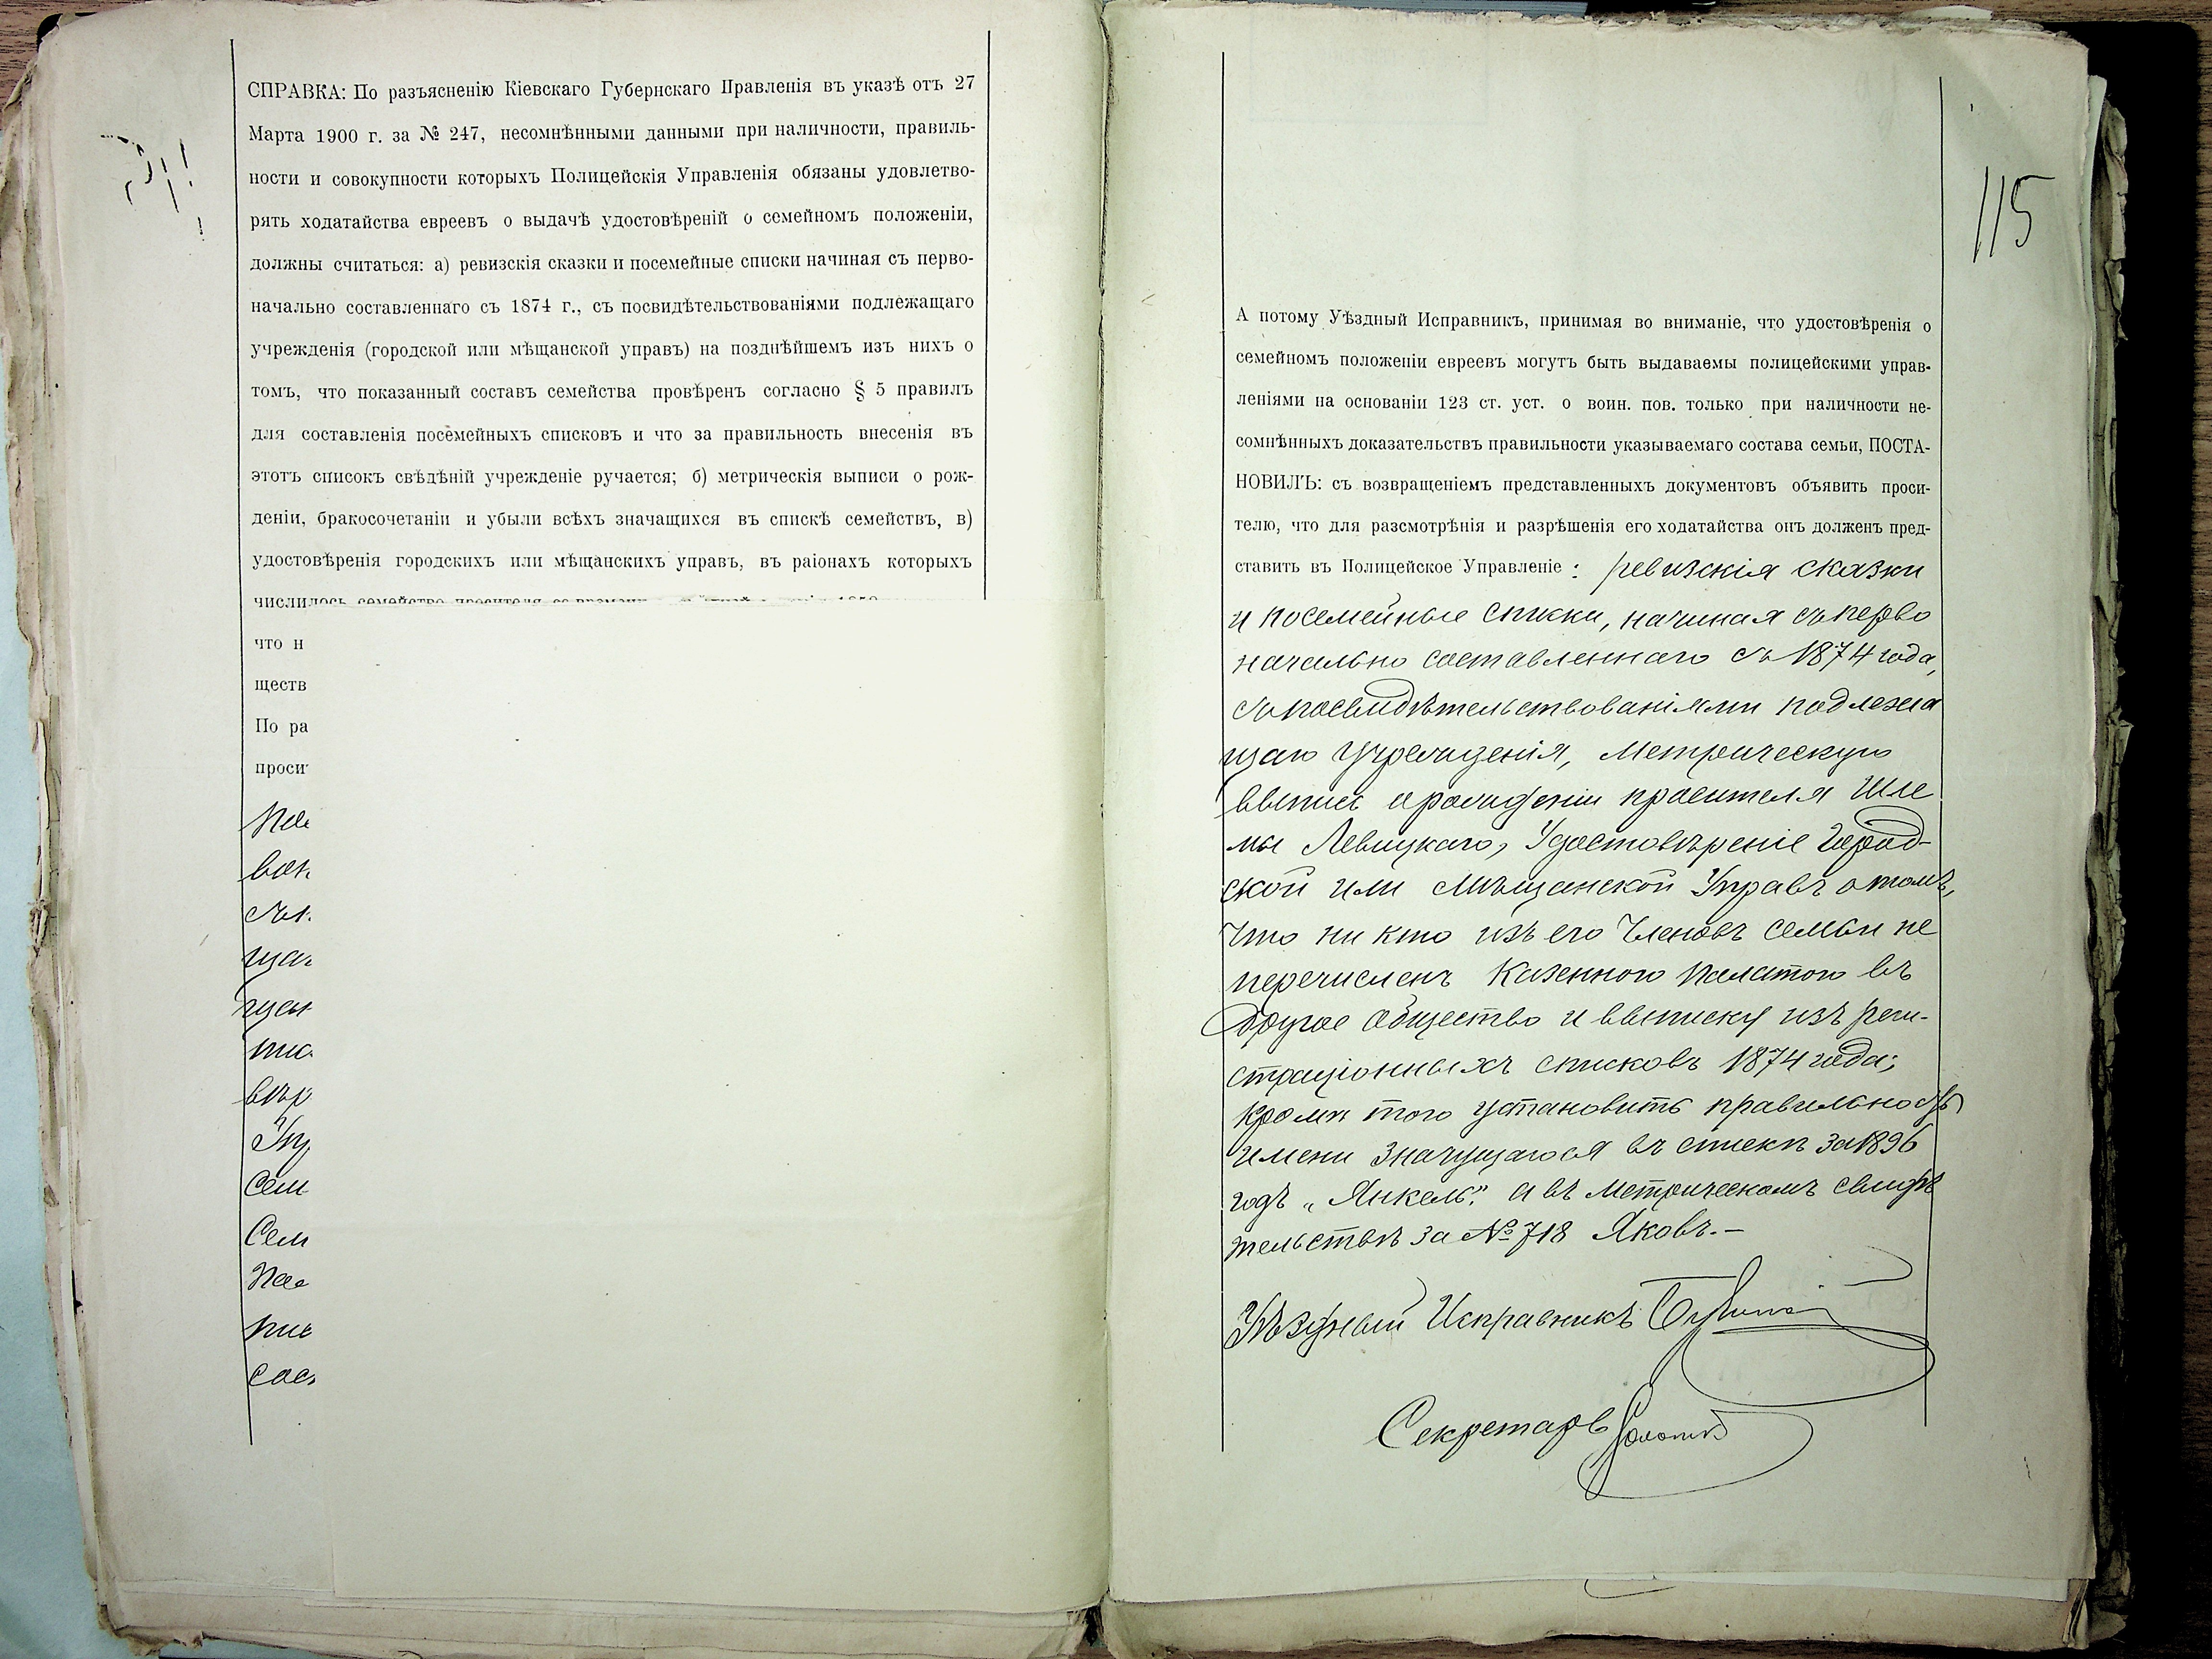 СПРАВКА: По разъясненію Кіевскаго Губернскаго Правленія въ указѣ отъ 27
Марта 1900 г. за № 247, несомнѣнными данными при наличности, правиль-
ности и совокупности которыхъ Полицейскія Управленія обязаны удовлетво-
рять ходатайства евреевъ о выдачѣ удостовѣреній о семейномъ положеніи,
должны считаться: а) ревизскія сказки и посемейные списки начиная съ перво-
начально составленнаго съ 1874 г., съ посвидѣтельствованіями подлежащаго
учрежденія (городской или мѣщанской управъ) на позднѣйшемъ изъ нихъ о
томъ, что показанный составъ семейства провѣренъ согласно § 5 правилъ
для составленія посемейныхъ списковъ и что за правильность внесенія въ
этотъ списокъ свѣдѣній учрежденіе ручается; б) метрическія выписи о рож-
деніи, бракосочетаніи и убыли всѣхъ значащихся въ спискѣ семействъ, в)
удостовѣренія городскихъ или мѣщанскихъ управъ, въ раіонахъ которыхъ
числилось семейство просителя со времени
что н
ществ
По ра
проси
вон
Сем
Сем
115
А потому Уѣздный Исправникъ, принимая во вниманіе, что удостовѣренія о
семейномъ положеніи евреевъ могутъ быть выдаваемы полицейскими управ-
леніями на основаніи 123 ст. уст. о воин. пов. только при наличности не-
сомнѣнныхъ доказательствъ правильности указываемаго состава семьи, ПОСТА-
НОВИЛЪ: съ возвращеніемъ представленныхъ документовъ объявить проси-
телю, что для разсмотрѣнія и разрѣшенія его ходатайства онъ долженъ пред-
ставить въ Полицейское Управленіе: ревизскія сказки
и посемейные списки, начиная съ перво
начально составленнаго съ 1874 года,
съ посвидѣтельствованіями подлежа
щаго учрежденія, Метрическую
выпись о рожденіи просителя Шле
мы Левицкаго, Удостовѣреніе Город-
ской или Мѣщанской Управъ о томъ,
что ни кто изъ его Членовъ семьи не
перечисленъ Казенною Палатою въ
другое общество и выписку изъ реги-
страціонныхъ списковъ 1874 года;
кромѣ того установить правильность
имени значущагося въ спискѣ за 1896
годъ „Янкель". а въ Метрическомъ свидѣ
тельствѣ за № 718 Яковъ.—
Уѣздный Исправникъ
Секретарь